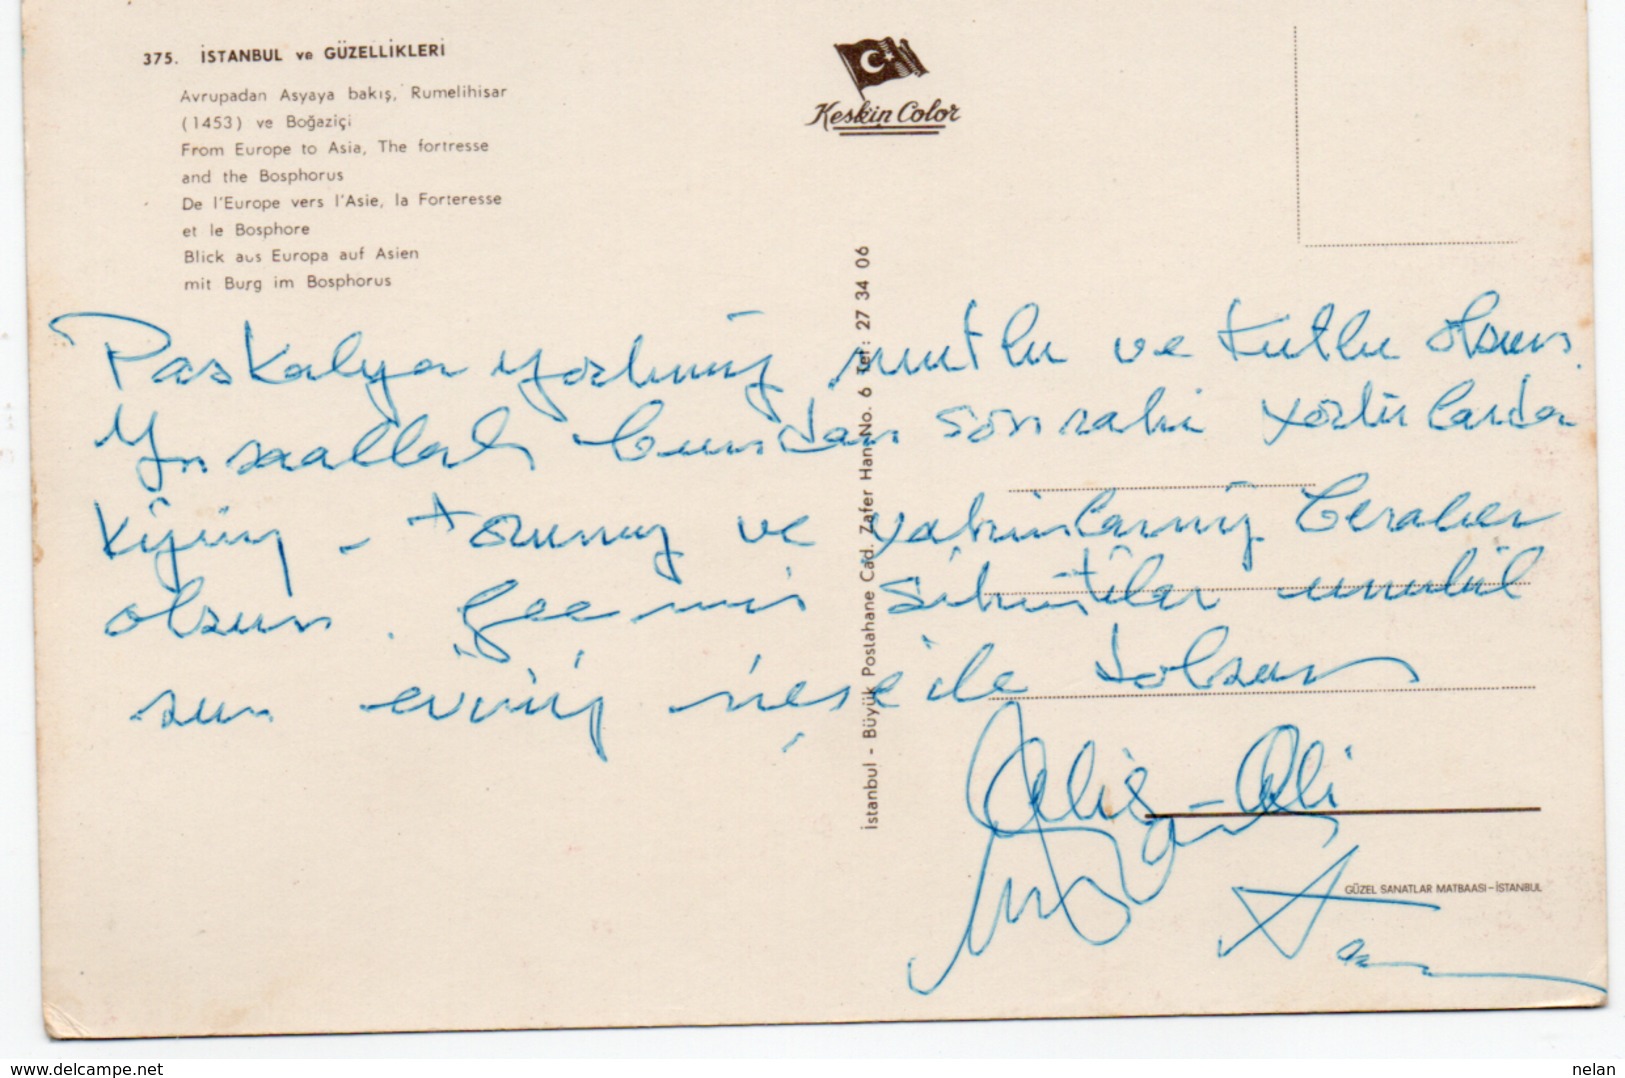 375. İSTANBUL ve GÜZELLİKLERİ
Avrupadan Asyaya bakış, Rumelihisar
(1453) ve Boğaziçi
From Europe to Asia, The fortresse
and the Bosphorus
De l'Europe vers l'Asie, la Forteresse
et le Bosphore
Blick aus Europa auf Asien
mit Burg im Bosphorus
Keskin Color
İstanbul - Büyük Postahane Cad. Zafer Han No. 6 Tel: 27 34 06
Paskalya mutlu ve kutlu olsun.
Ynsaallah bundan sonraki
ve beraber
olsun. Geçmiş sıkıntılar unutul
sun eviniz neşe ile dolsun
Ali
GÜZEL SANATLAR MATBAASI-İSTANBUL
delcampe.net
nelan